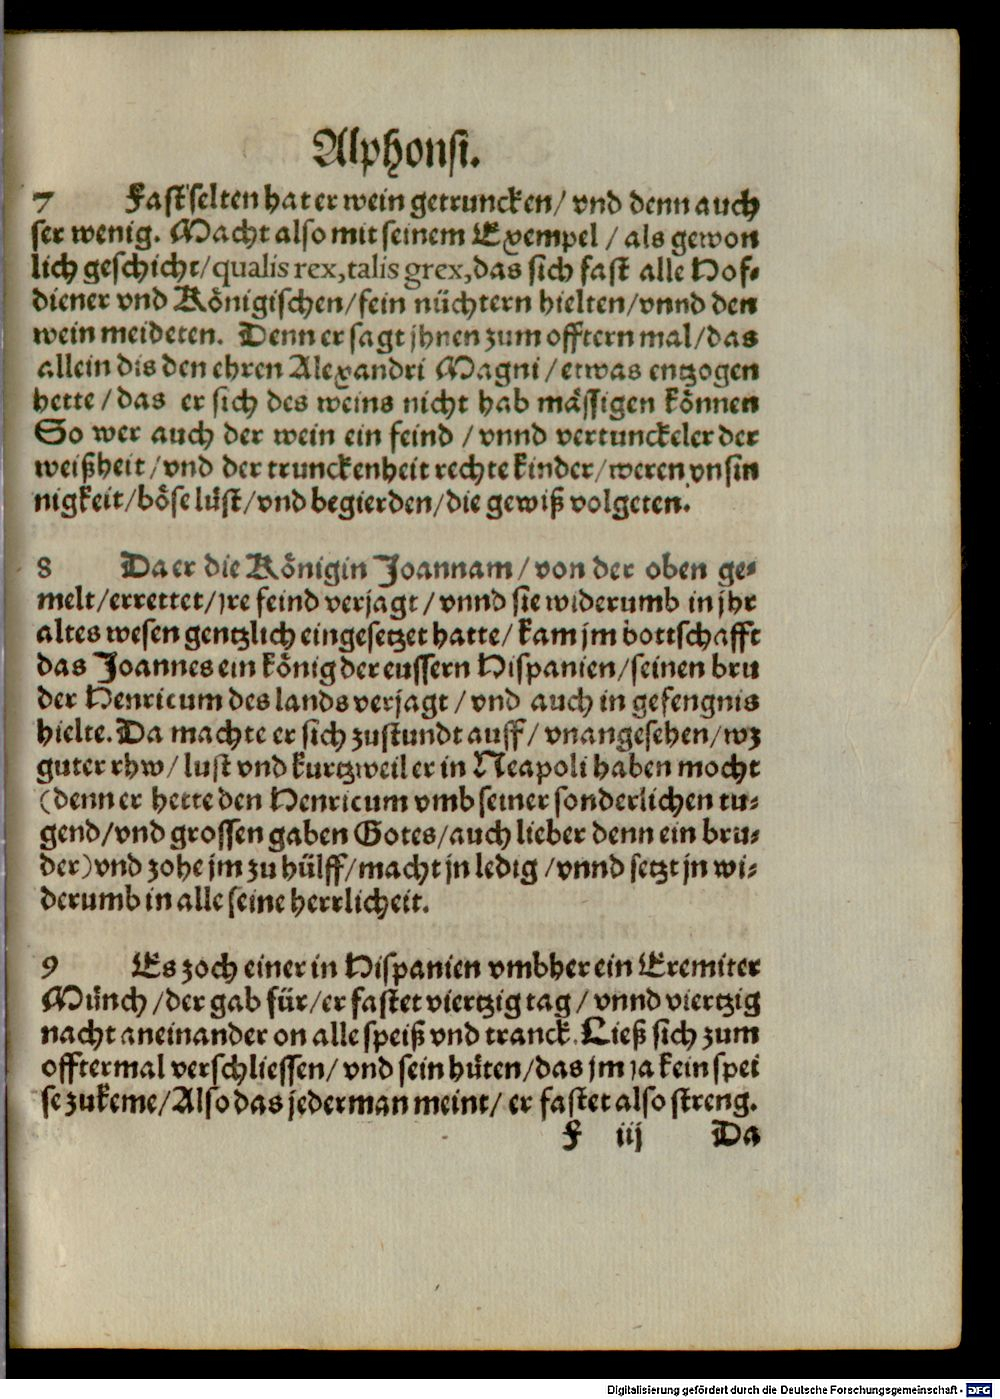 Alphonsi.
7 Fast selten hat er wein getruncken/ vnd denn auch
ser wenig. Macht also mit seinem Exempel / als gewon
lich geschicht/qualis rex, talis grex, das sich fast alle Hof-
diener vnd Königischen/fein nüchtern hielten/vnnd den
wein meideten. Denn er sagt jhnen zum offtern mal/das
allein dis den ehren Alexandri Magni / etwas entzogen
hette / das er sich des weins nicht hab mässigen können
So wer auch der wein ein feind / vnnd vertunckeler der
weißheit /vnd der trunckenheit rechte kinder/weren vnsin
nigkeit/böse lüst/vnd begierden/die gewiß volgeten.
8 Da er die Königin Joannam / von der oben ge-
melt/errettet/jre feind verjagt / vnnd sie widerumb in jhr
altes wesen gentzlich eingesetzet hatte/ kam jm bottschafft
das Joannes ein könig der eussern Hispanien/seinen bru
der Henricum des lands verjagt / vnd auch in gefengnis
hielte. Da machte er sich zustundt auff/ vnangesehen/wz
guter rhw/ lust vnd kurtzweil er in Neapoli haben mocht
(denn er hette den Henricum vmb seiner sonderlichen tu-
gend/vnd grossen gaben Gotes/auch lieber denn ein bru-
der) vnd zohe jm zu hülff/macht jn ledig /vnnd setzt jn wi-
derumb in alle seine herrlicheit.
9 Es zoch einer in Hispanien vmbher ein Eremiter
Münch /der gab für/er fastet viertzig tag / vnnd viertzig
nacht aneinander on alle speiß vnd tranck. Ließ sich zum
offtermal verschliessen/ vnd sein hüten/das jm ja kein spei
se zukeme/Also das jederman meint/ er fastet also streng.
F iij Da
Digitalisierung gefördert durch die Deutsche Forschungsgemeinschaft - DFG